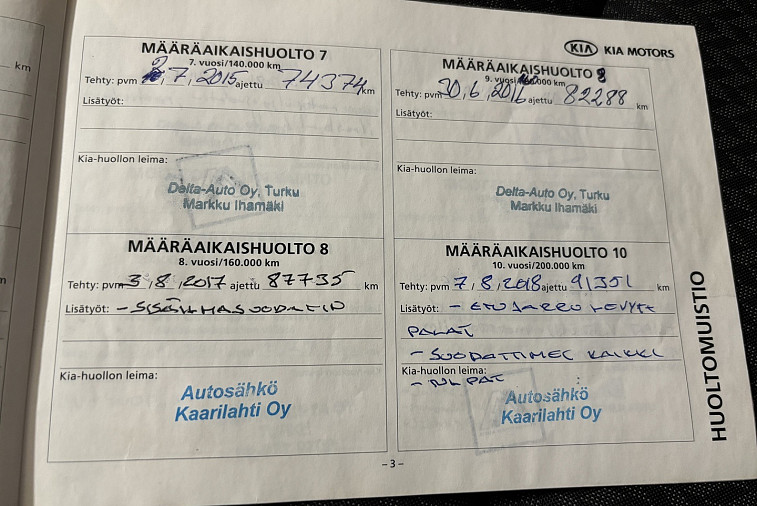 km
KIA KIA MOTORS
MÄÄRÄAIKAISHUOLTO 7
7. vuosi/140.000 km
Tehty: pvm 2,7,2015 ajettu 74374 km
Lisätyöt:
Kia-huollon leima:
Delta-Auto Oy, Turku
Markku Ihamäki
MÄÄRÄAIKAISHUOLTO 9
9. vuosi/ 000 km
Tehty: pvm 30,6,2016 ajettu 82288 km
Lisätyöt:
Kia-huollon leima:
Delta-Auto Oy, Turku
Markku Ihamäki
MÄÄRÄAIKAISHUOLTO 8
8. vuosi/160.000 km
Tehty: pvm 3,8,2017 ajettu 87735 km
Lisätyöt: -
Kia-huollon leima:
Autosähkö
Kaarilahti Oy
MÄÄRÄAIKAISHUOLTO 10
10. vuosi/200.000 km
Tehty: pvm 7,8,2018 ajettu 91351 km
Lisätyöt: - ETUJARRU LEVYT+
PALAT
- SUODATTIMET KAIKKI
Kia-huollon leima:
Autosähkö
Kaarilahti Oy
HUOLTOMUISTIO
– 3 –